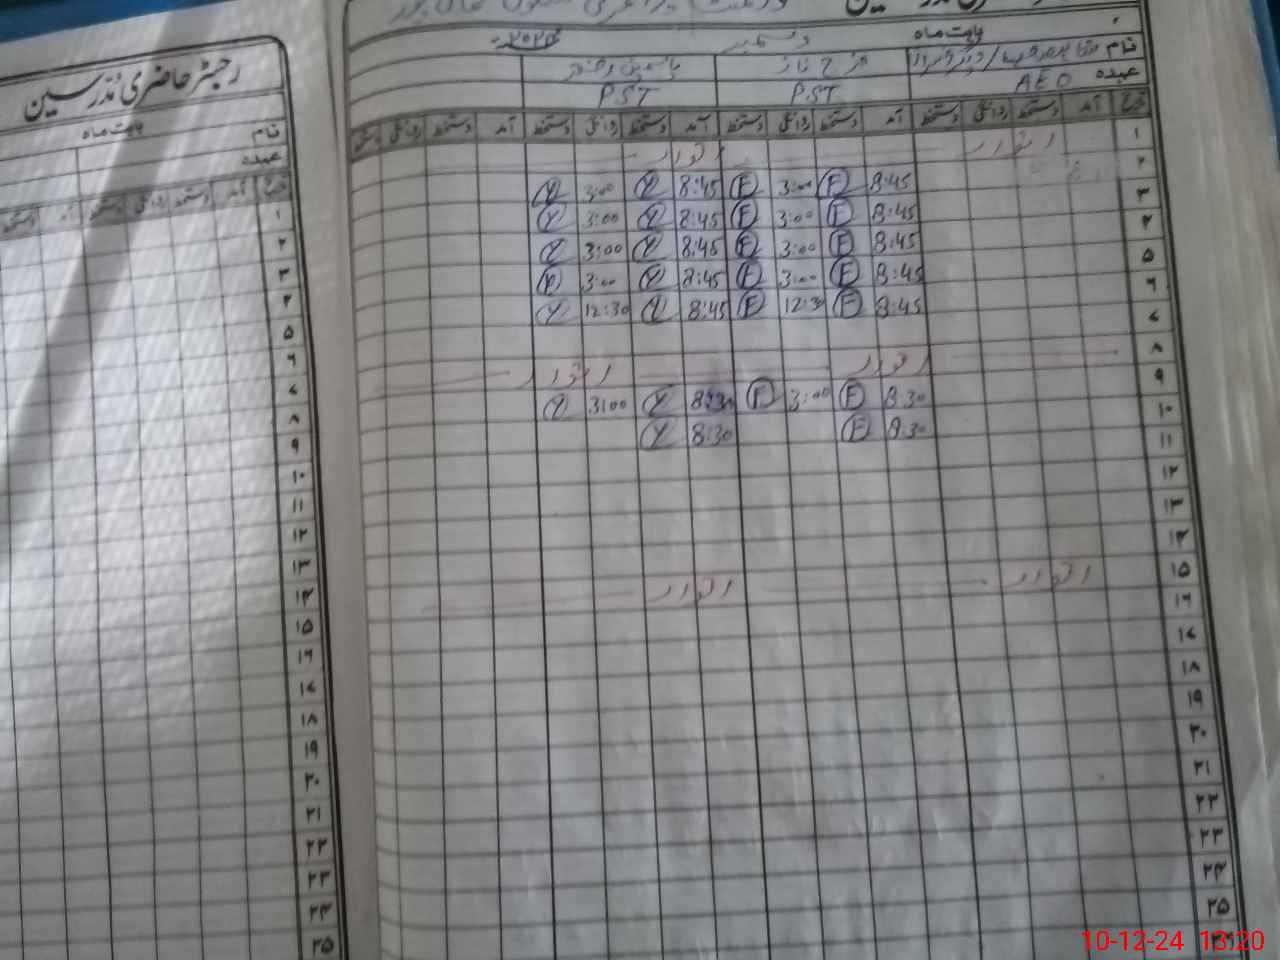 رجسٹر حاضری مدرسین
بابت ماہ
نام
عہدہ
تاریخ آمد دستخط روانگی دستخط آمد دستخط
۱
۲
۳
۴
۵
۶
۷
۸
۹
۱۰
۱۱
۱۲
۱۳
۱۴
۱۵
۱۶
۱۷
۱۸
۱۹
۲۰
۲۱
۲۲
۲۳
۲۴
۲۵
بابت ماہ دسمبر
نام فرح ناز
عہدہ AEO PST PST
تاریخ آمد دستخط روانگی دستخط آمد دستخط روانگی دستخط آمد دستخط روانگی دستخط آمد دستخط روانگی دستخط
۱ اتوار اتوار
۲ 8:45 F 3:00 F 8:45 Y 3:00 Y
۳ 8:45 F 3:00 F 8:45 Y 3:00 Y
۴ 8:45 F 3:00 F 8:45 Y 3:00 Y
۵ 8:45 F 3:00 F 8:45 Y 3:00 Y
۶ 8:45 F 12:30 F 8:45 Y 12:30 Y
۷
۸ اتوار اتوار
۹ 8:30 F 3:00 F 8:30 Y 3:00 Y
۱۰ 8:30 F 8:30 Y
۱۱
۱۲
۱۳
۱۴
۱۵ اتوار اتوار
۱۶
۱۷
۱۸
۱۹
۲۰
۲۱
۲۲
۲۳
۲۴
۲۵
10-12-24 13:20